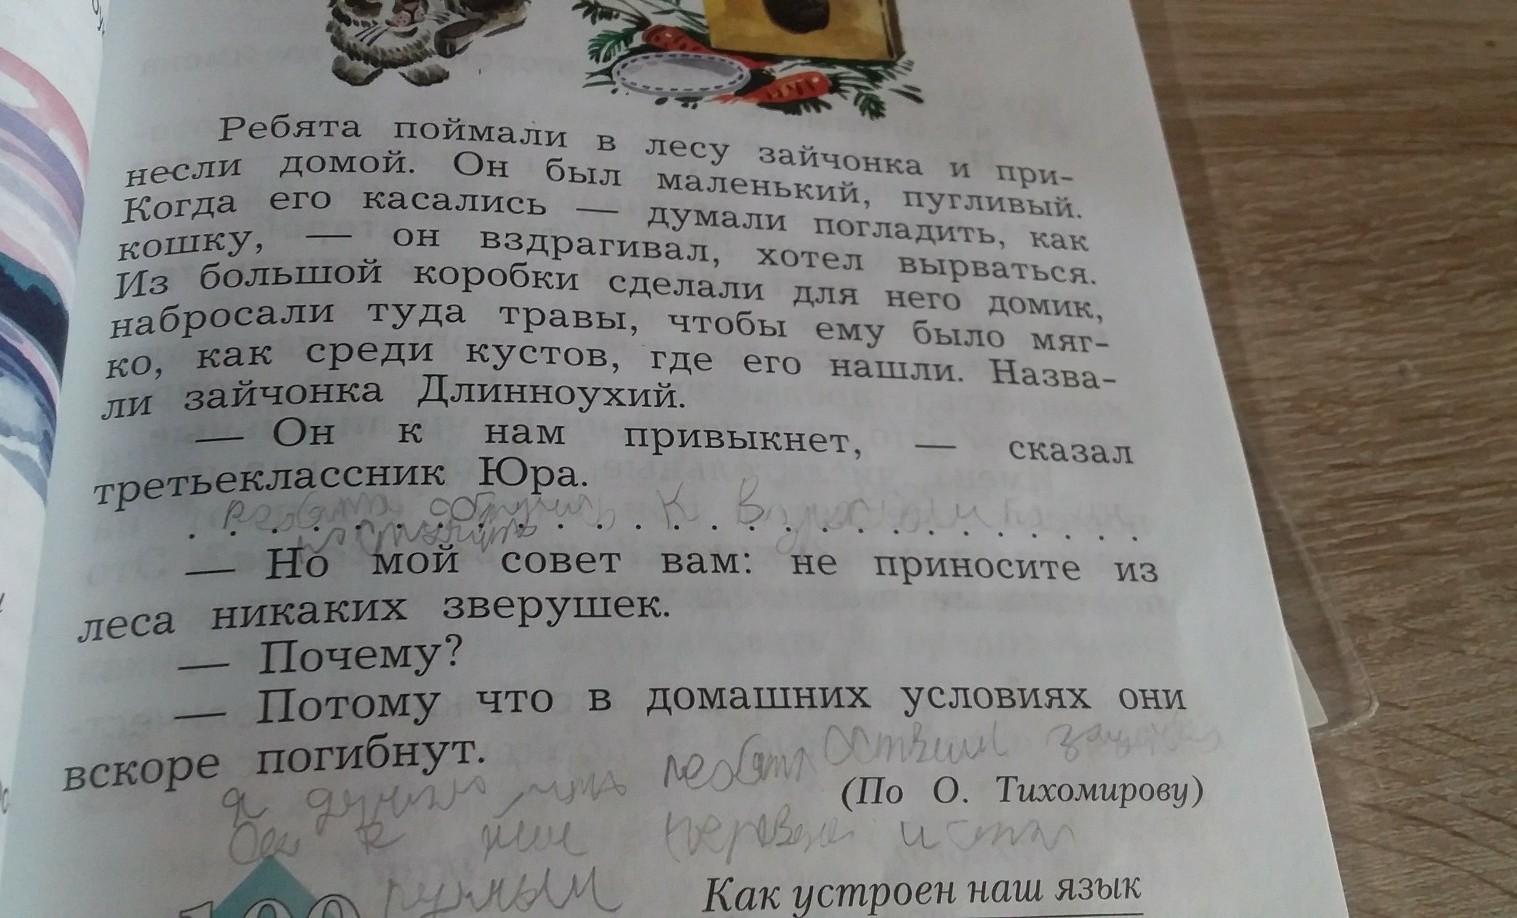 Ребята поймали в лесу зайчонка и при-
несли домой. Он был маленький, пугливый.
Когда его касались — думали погладить, как
кошку, — он вздрагивал, хотел вырваться.
Из большой коробки сделали для него домик,
набросали туда травы, чтобы ему было мяг-
ко, как среди кустов, где его нашли. Назва-
ли зайчонка Длинноухий.
— Он к нам привыкнет, — сказал
третьеклассник Юра.
ребята к
. . . . . . . . . . . . . . . . . . . . . . . .
— Но мой совет вам: не приносите из
леса никаких зверушек.
— Почему?
— Потому что в домашних условиях они
вскоре погибнут.
я думаю что ребята
(По О. Тихомирову)
к и
Как устроен наш язык